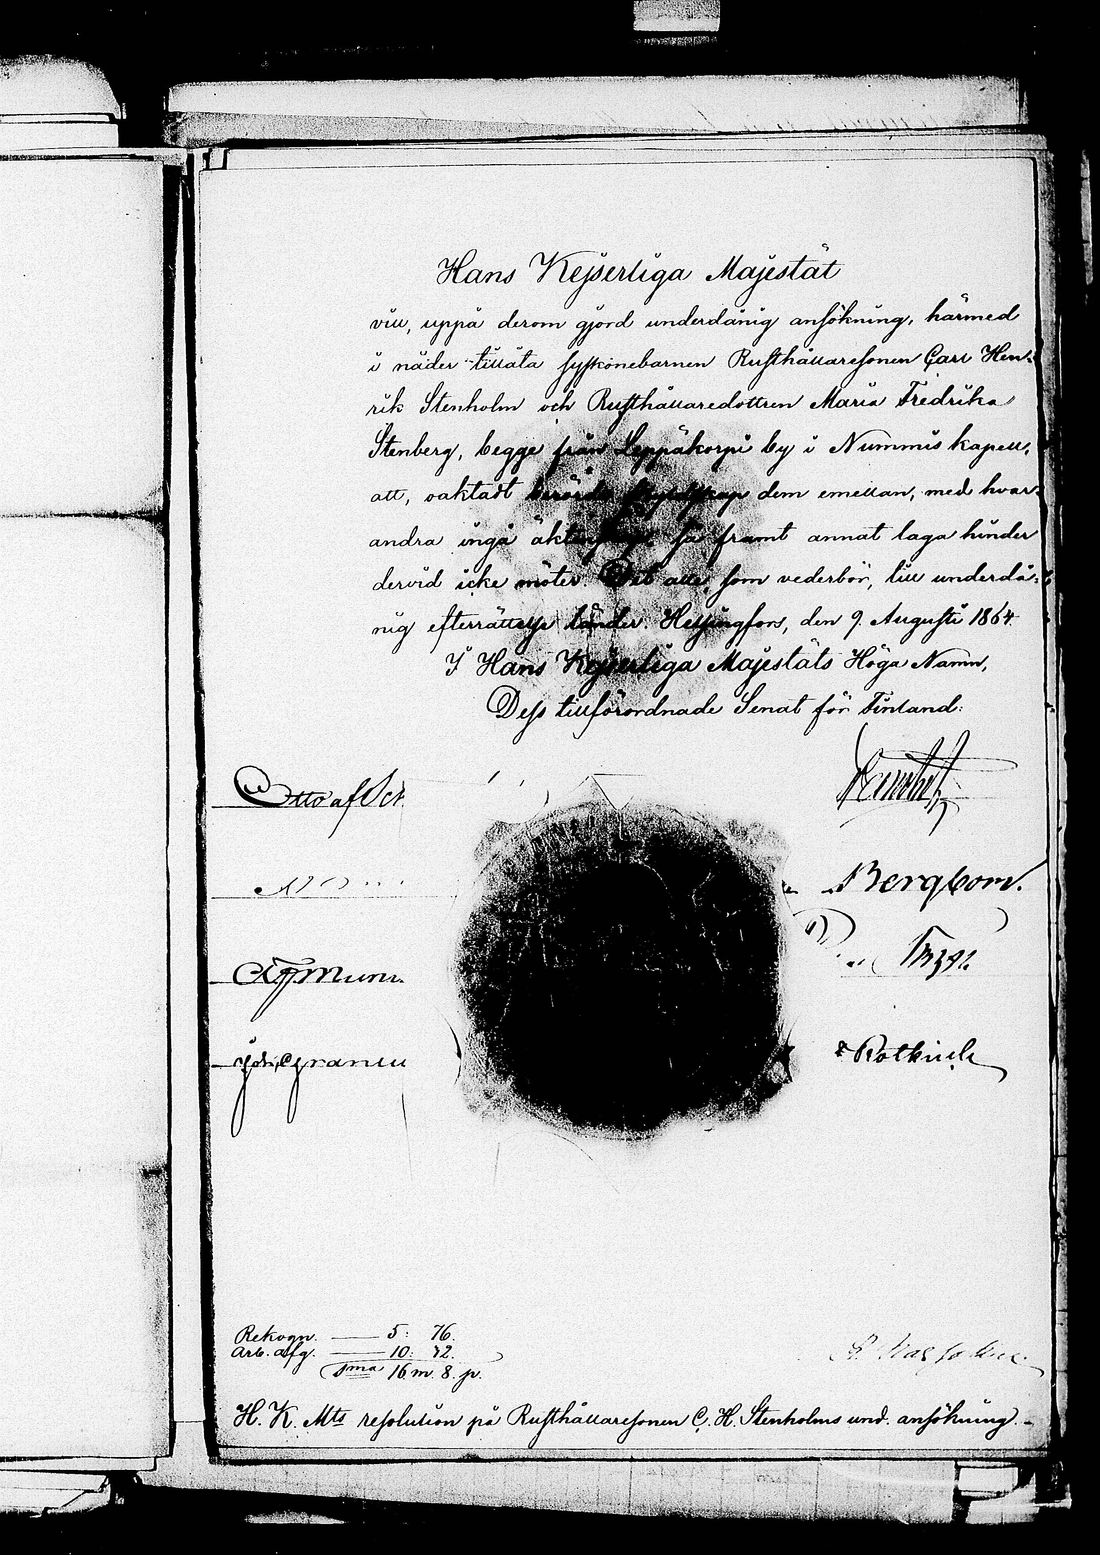 Hans Kejserliga Majestät
vill, uppå derom gjord underdånig ansökning, härmed
i nåder tillåta syskonebarnen Rusthållaresonen Carl Hen-
rik Stenholm och Rusthållaredottren Maria Fredrika
Stenberg, begge från Leppäkorpi by i Nummis kapell,
att, oaktadt berörde skyldskap dem emellan, med hvar-
andra ingå äktenskap, så framt annat laga hinder
dervid icke möter. Det alle, som vederbör, till underdå-
nig efterrättelse länder. Helsingfors, den 9. Augusti 1864.
I Hans Kejserliga Majestäts Höga Namn,
Dess tillförordnade Senat för Finland:
Otto af Sch
Bergbom.
Joh. Granlu
Rotkirch
Rekogn. — 5: 76.
Arb. afg. — 10: 32.
Sma 16 m. 8. p.
H. K. Mts resolution på Rusthållaresonen C. H. Stenholms und. ansökning.